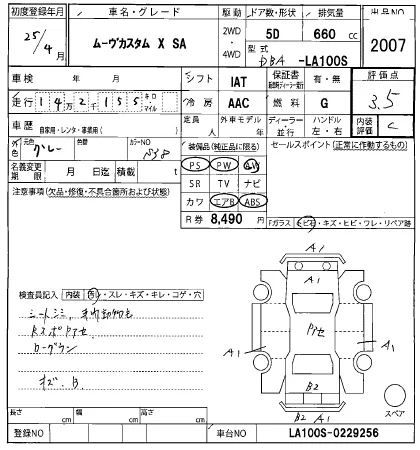 初度登録年月 車名・グレード 駆動 ドア数・形状 排気量 出品NO
25/4月 ムーヴカスタム X SA 2WD・4WD 5D 660 cc 2007
型式 DBA -LA100S
車検 年 月 シフト IAT 保証書 有・無 評価点
走行 14万2155 キロ マイル 冷房 AAC 燃料 G 3.5
車歴 自家用・レンタ・事業用( ) 定員 人 外車モデル 年 ディーラー・並行 ハンドル 左・右 内装評価 C
外色 元色 グレー 色替 カラーNO 装備品(純正品に限る) セールスポイント(正常に作動するもの)
名義変更期限 月 日迄 積載 t PS PW AW
注意事項(欠品・修復・不具合箇所および状態) SR TV ナビ
カワ エアB ABS
R券 8,490 円
Fガラス トビ石・キズ・ヒビ・ワレ・リペア跡
A1
A1
検査員記入 内装 汚・スレ・キズ・キレ・コゲ・穴
シートシミ
Pアセ
A1 A1
キズ.B
B2
B2 A1
スペア
長さ cm 幅 cm 高さ cm
登録NO 車台NO LA100S-0229256